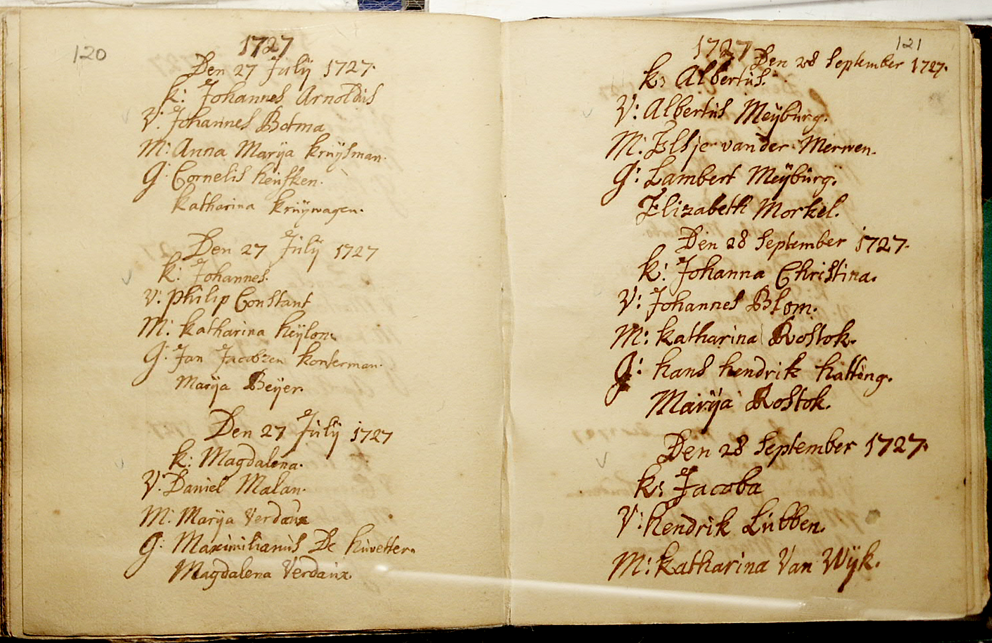 120
1727
Den 27 Julÿ 1727.
k: Johannes Arnoldis
V: Johannes Botma
M: Anna Marÿa kruÿsman.
G: Cornelis heufken.
katharina kruÿwagen.
Den 27 Julÿ 1727
k: Johannes.
V: Philip Constant
M: katharina heÿlon.
G: Jan Jacobsen konterman.
Marÿa Beÿer
Den 27 Julÿ 1727
k: Magdalena.
V: Daniel Malan.
M: Marÿa Verdaux
G: Maximilianus De
Magdalena Verdaux.
121
1727
Den 28 September 1727.
k: Albertus.
V: Albertus Meÿburg.
M: Elsje van der Merwen.
G: Lambert Meÿburg.
Elizabeth Morkel.
Den 28 September 1727.
k: Johanna Christina.
V: Johannes Blom.
M: katharina Rostok.
G: hans hendrik hatting.
Marÿa Rostok.
Den 28 September 1727.
k: Jacoba
V: hendrik Lubben.
M: katharina Van Wÿk.